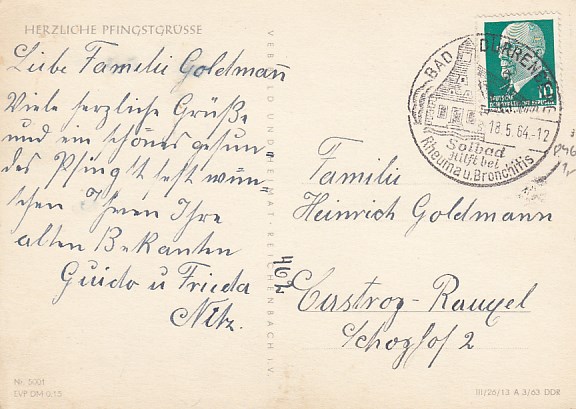 HERZLICHE PFINGSTGRÜSSE
Liebe Familie Goldman
Viele herzliche Grüße
und ein schönes gesun
des Pfingstfest wün
schen Ihnen Ihre
alten Bekanten
Guido u Frieda
Nitz.
Nr. 5001
EVP DM 0,15
VEB BILD UND HEIMAT REICHENBACH I.V.
BAD DÜRRENBERG
18.5.64-12
Solbad
hilft bei
Rheuma u. Bronchitis
10
DEUTSCHE
DEMOKRATISCHE REPUBLIK
Familie
Heinrich Goldmann
462
Castrop-Rauxel
Schoghof 2
III/26/13 A 3/63 DDR